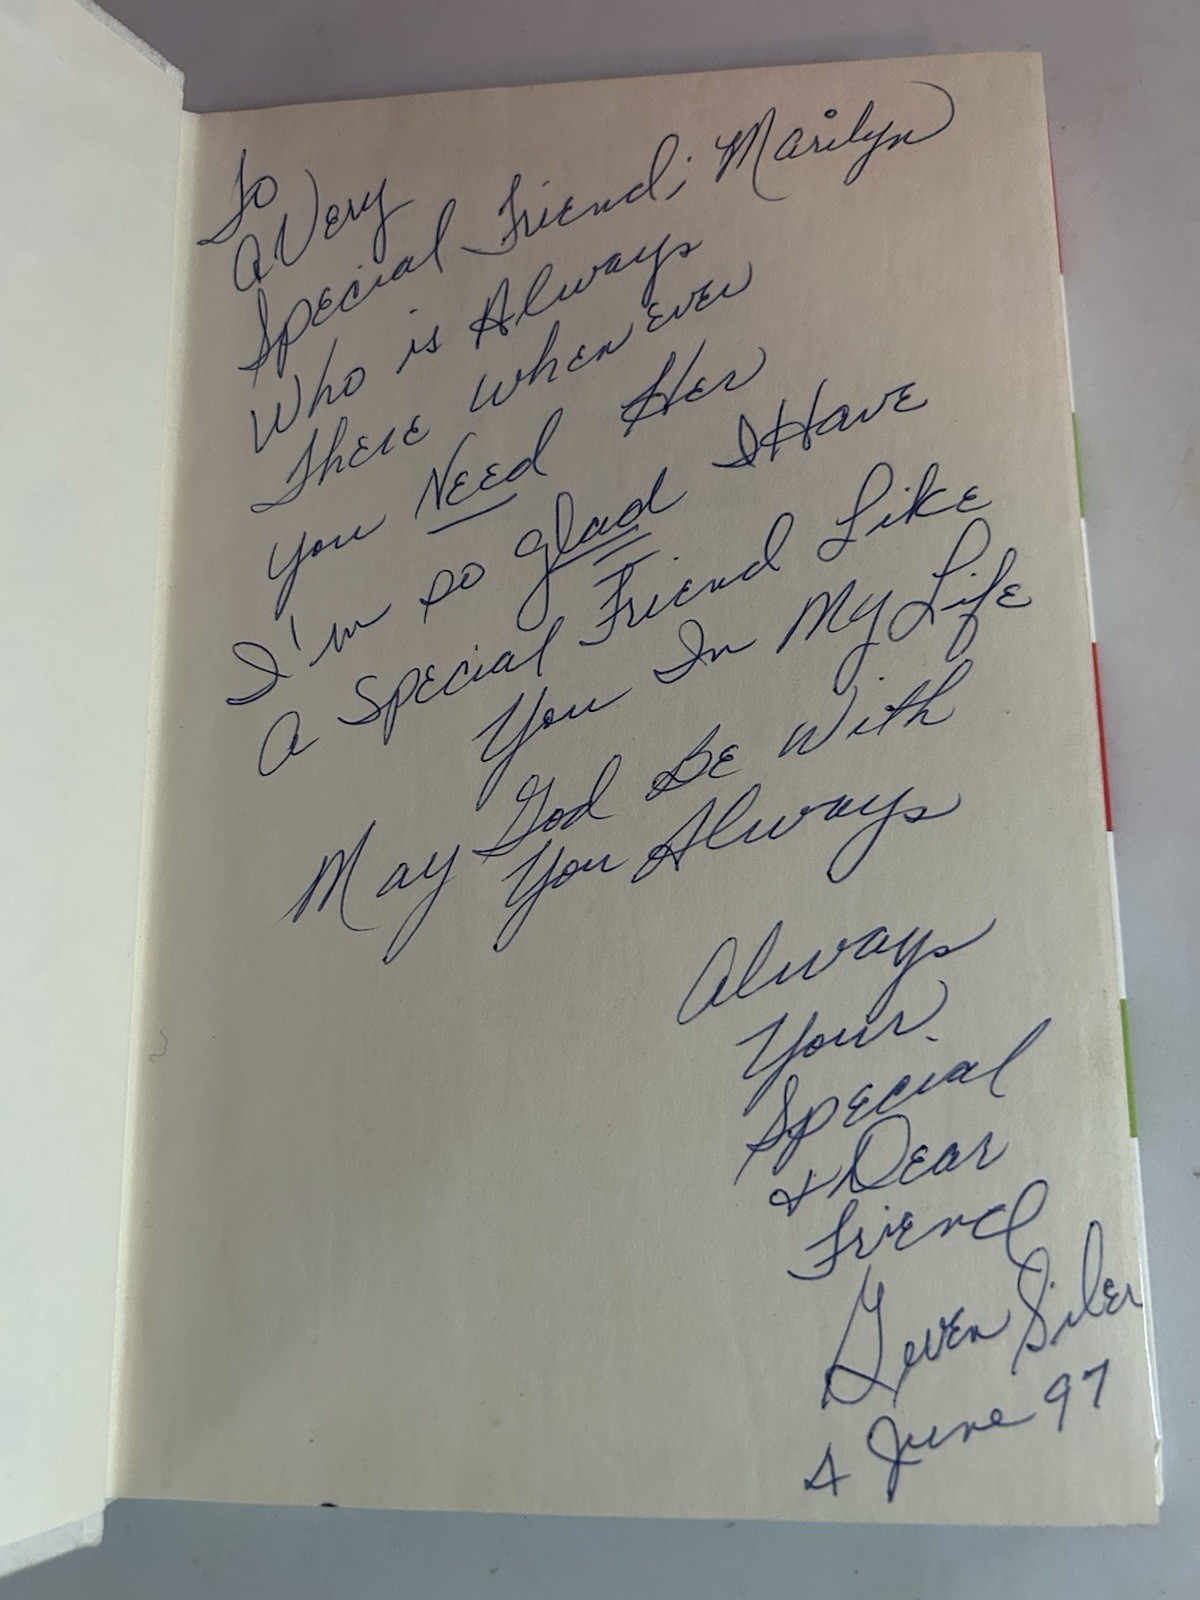 To
A Very
Special Friend; Marilyn
Who is Always
There when ever
you Need Her
I'm so glad I Have
A Special Friend Like
You In My Life
May God Be With
You Always
Always
Your
Special
& Dear
Friend
Geven Siler
4 June 97